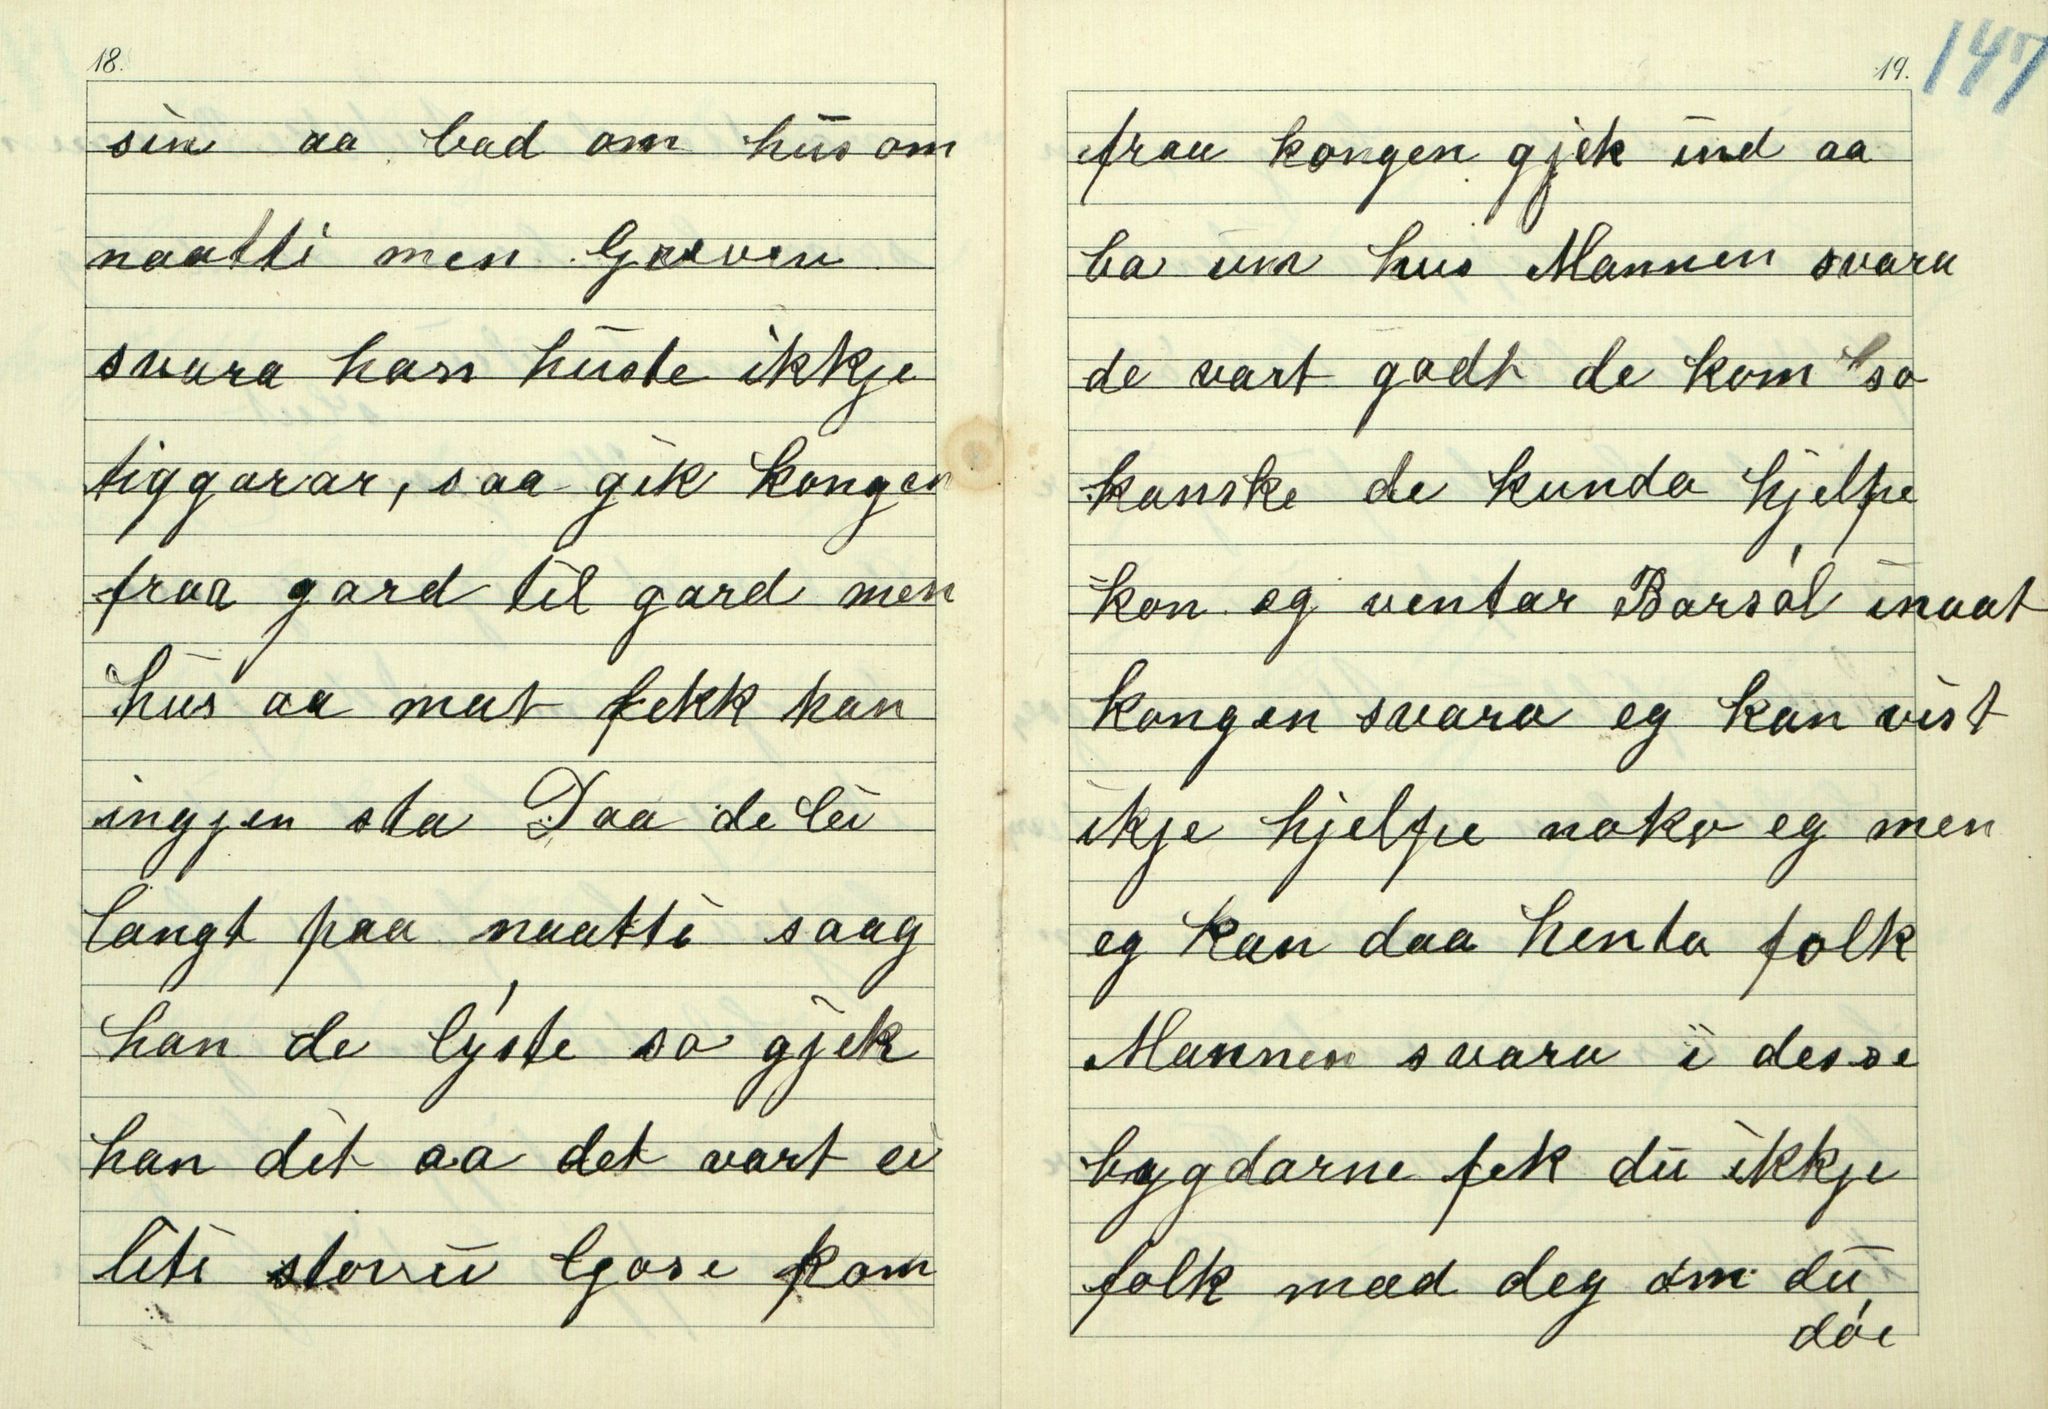 18.
sin aa bad om hus om
naatti men Greven
svara han huste ikkje
tiggarar, saa gik kongen
fraa gard til gard men
hus aa mat fekk han
ingjen sta Daa de lei
langt paa naatti saag
han de lyste so gjek
han dit aa det vart ei
liti stovu ljose kom
19.
147
fraa kongen gjek ind aa
ba um hus Mannen svara
de vart godt de kom so
kanske de kunda hjelpe
kon eg ventar Barsól inaat
kongen svara eg kan vist
ikje hjelpe noko eg men
eg kan daa henta folk
Mannen svara i desse
bygdarne fek du ikkje
folk mæd deg om du
dóe